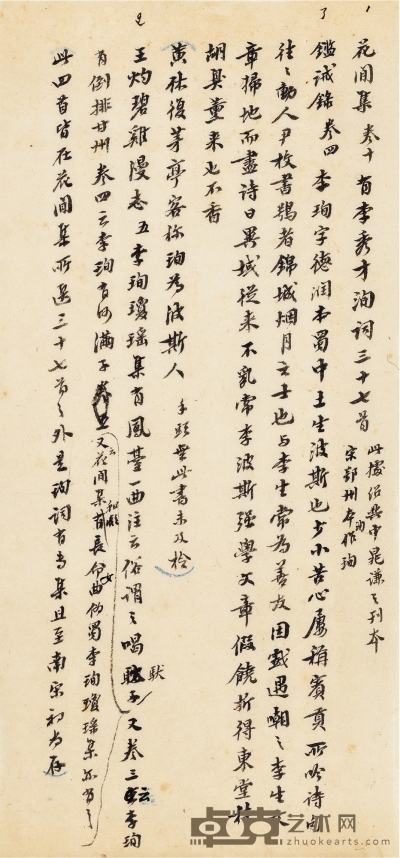 花間集卷十有李秀才洵詞三十七首
此據紹興中晁謙之刊本
宋鄂州本洵作珣
鑑誡錄卷四李珣字德润本蜀中土生波斯也少小苦心屢稱賓貢所吟诗句
往々動人尹校書鶚者錦城烟月之士也与李生常為善友因戲遇嘲之李生文
章掃地而盡诗曰異域從来不乳常李波斯强學文章假饒折得東堂桂
胡臭薰来也不香
黄休復茅亭客称珣為波斯人
手頭無此書未及检
王灼碧雞漫志五李珣瓊瑶集有風臺一曲注云俗謂之喝馱子又卷三云李珣
有倒排甘州卷四云李珣有河滿子又花間集
和凝
有長命女曲伪蜀李珣瓊瑶集亦有之
此四首皆在花間集所選三十七首之外是珣詞有专集且至南宋初尚存
卓克艺术网
www.zhuokearts.com